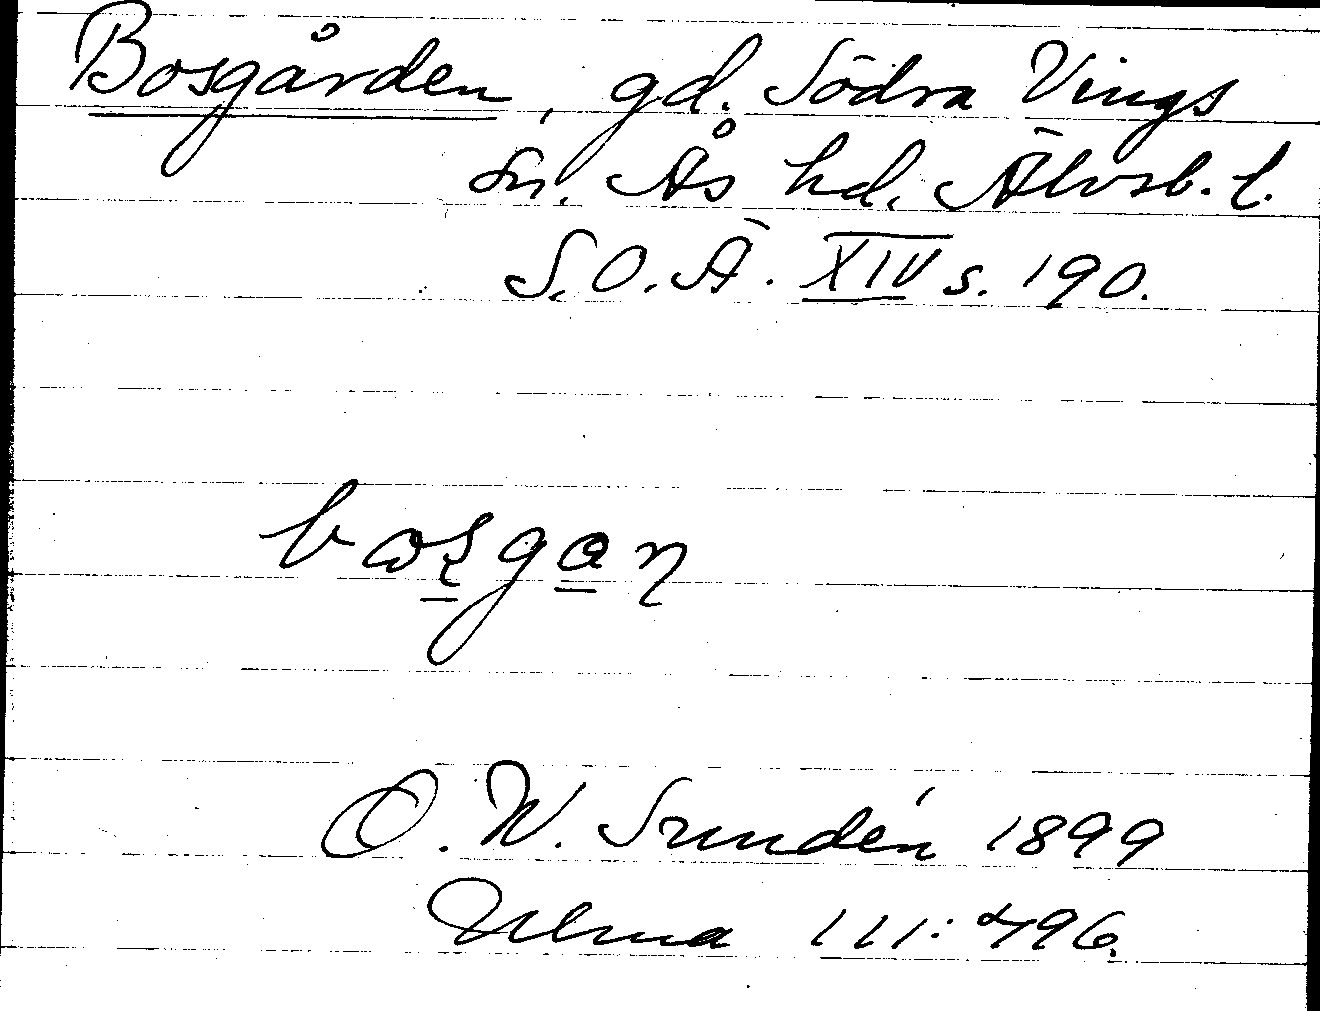 Bosgården, gd. Södra Vings
sn. Ås hd. Älvsb. l.
S.O.Ä. XIV s. 190.
O. W. Sundén 1899
Ulma 111:496.